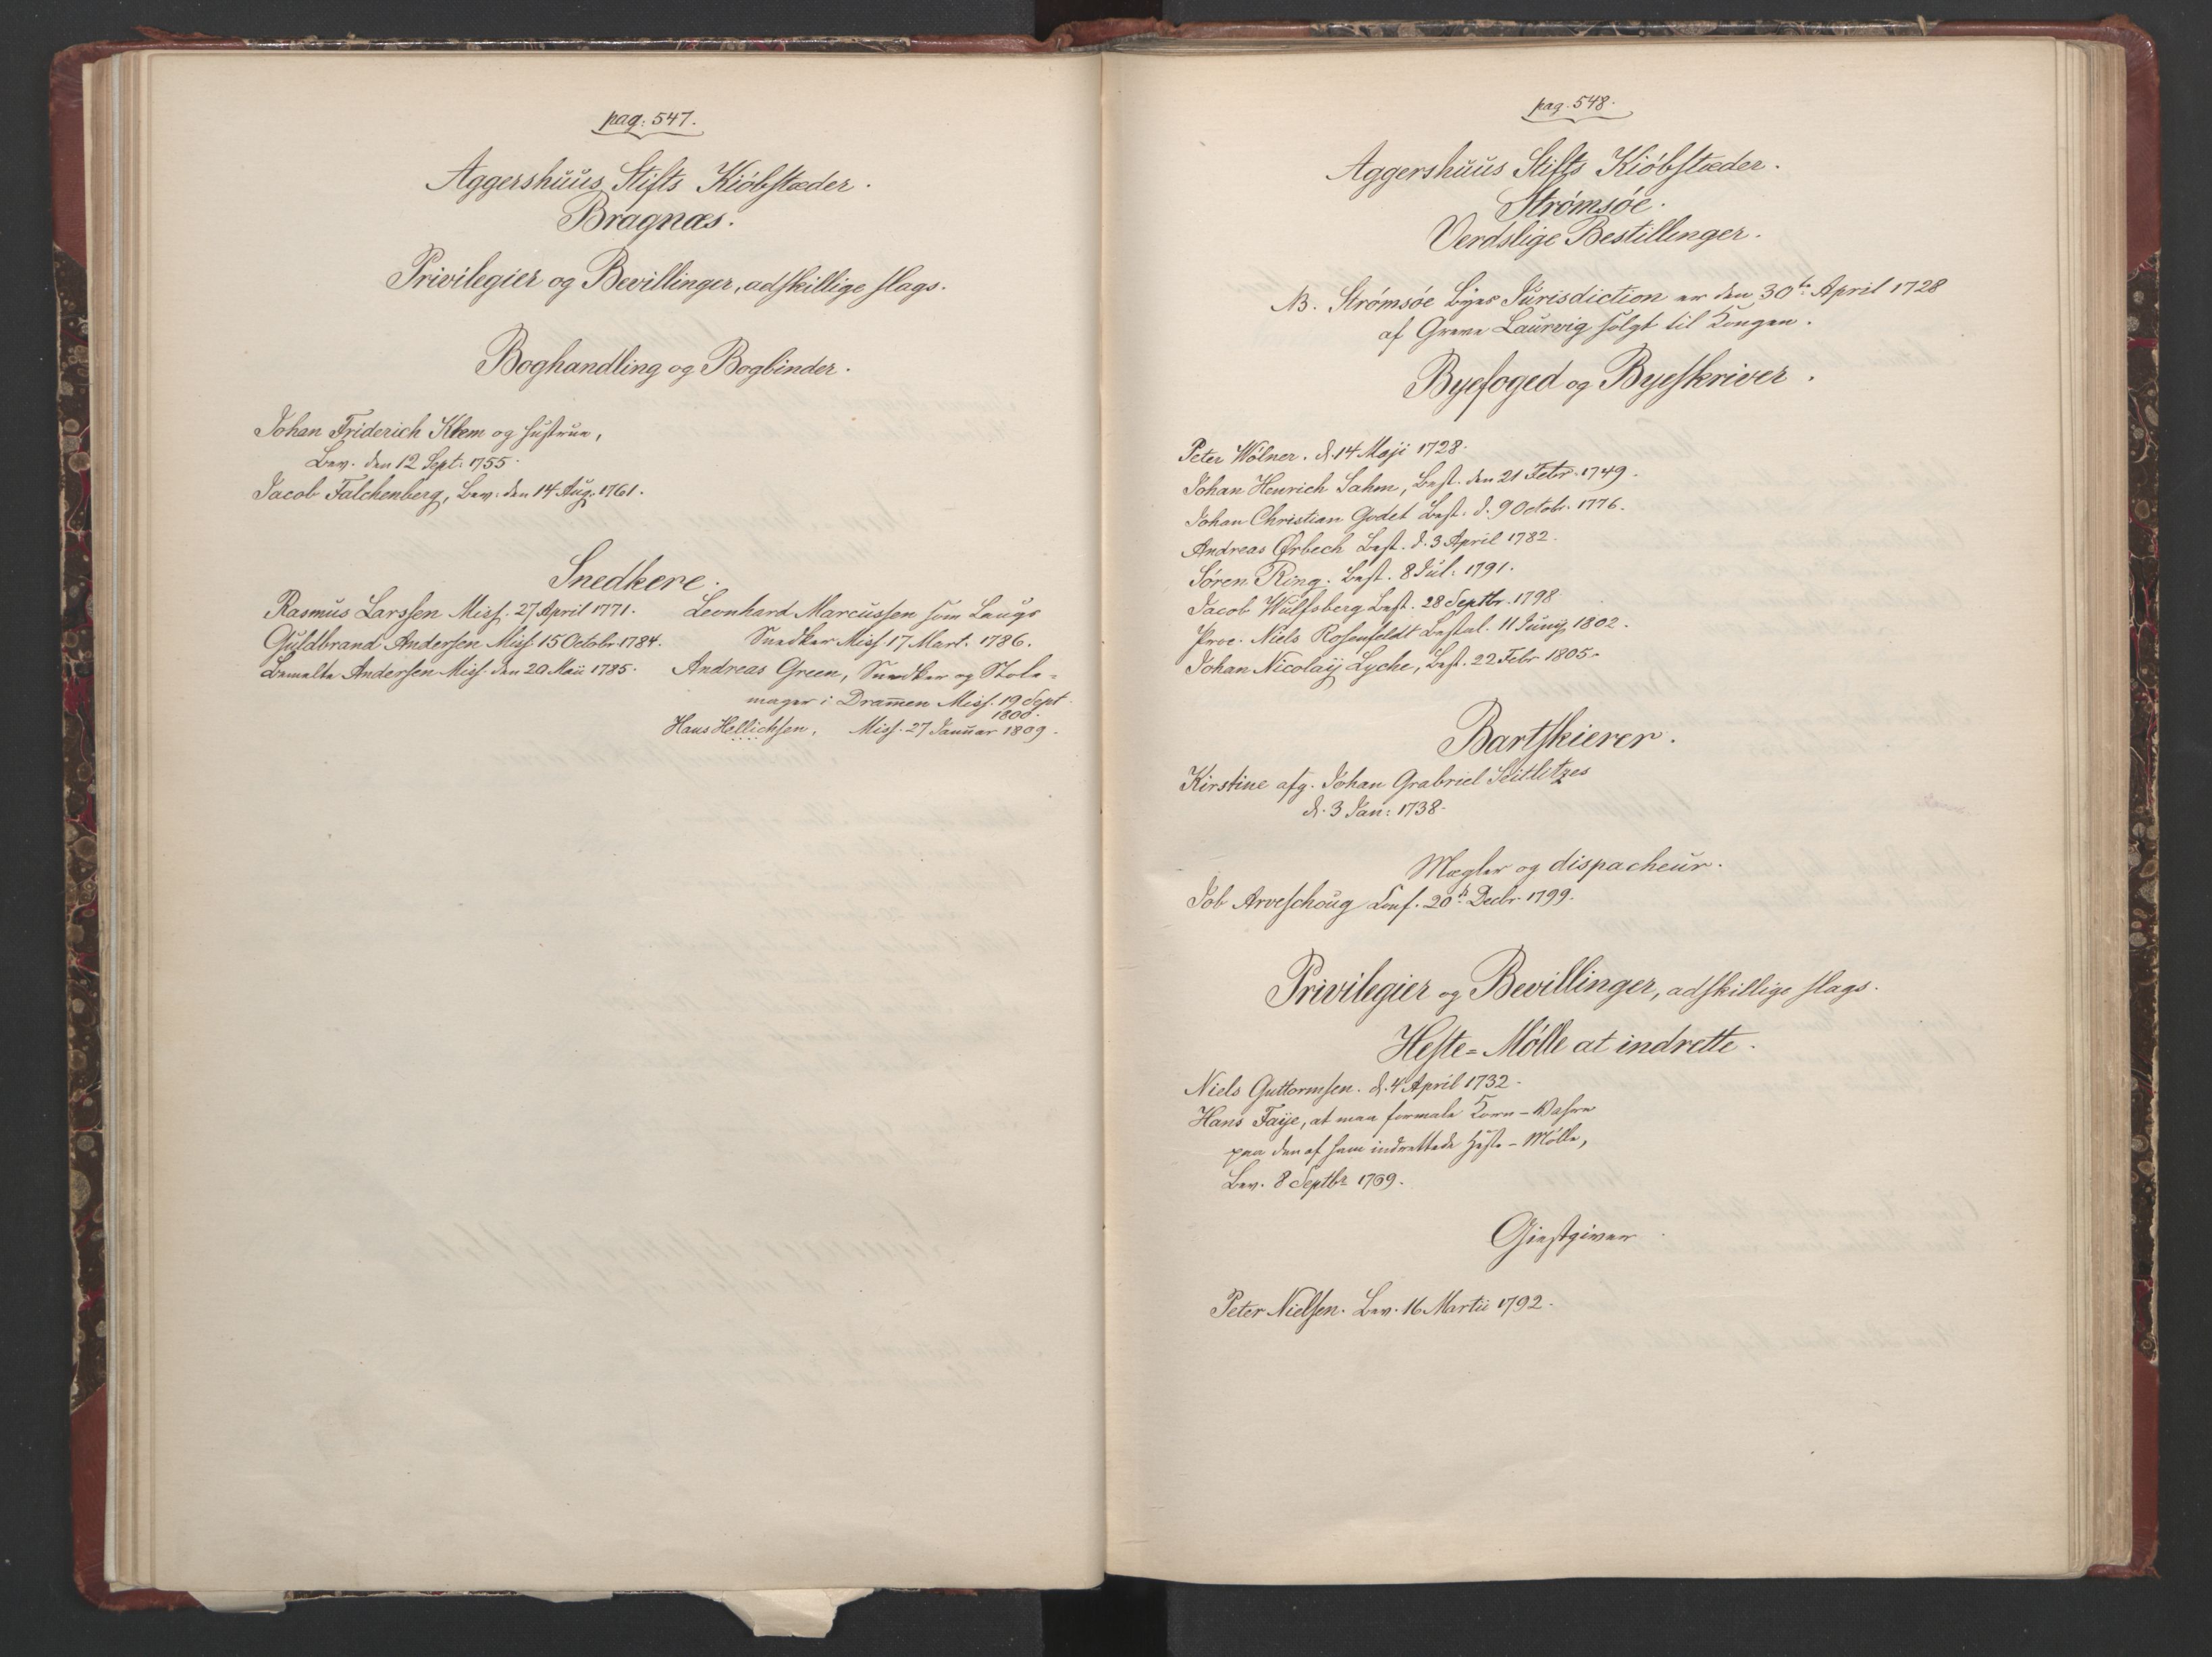 pag: 547.
Aggershuus Stifts Kiöbstæder.
Bragnæs.
Privilegier og Bevillinger, adskillige slags.
Boghandling og Bogbinder.
Johan Friderich Klem og Hustrue,
Bev. den 12 Sept: 1755.
Jacob Falchenberg, Bev. den 14 Aug. 1761.
Snedkere.
Rasmus Larssen Miss. 27 April 1771.
Guldbrand Andersen Miss. 15 Octobr 1784.
Bemelte Andersen Miss. den 20 Maii 1785.
Leonhard Marcussen som Laugs
Snedker Miss 17 Mart. 1786.
Andreas Green, Snedker og Stole=
mager i Dram̄en Miss. 19 Sept
1800.
Hans Hellichsen, Miss. 27 Januar 1809.
pag. 548.
Aggershuus Stifts Kiöbstæder.
Strömsöe.
Verdslige Bestillinger.
NB. Strömsöe Byes Jurisdiction er den 30te April 1728
af Greve Laurvig solgt til Kongen.
Byefoged og Byeskriver.
Peter Wölner. d. 14 Maji 1728.
Johan Henrich Sahm, Best. den 21 Febr. 1749.
Johan Christian Godet Best. d. 9 Octob. 1776.
Andreas Ørbech Best. d. 3 April 1782.
Sören Ring. Best. 8 Jul: 1791.
Jacob Wulfsberg Best. 28 Septbr. 1798
Proc. Niels Rosenfeldt Bestal. 11 Junij 1802.
Johan Nicolaij Lyche, Best. 22 Febr 1805.
Bartskierer.
Kirstine afg. Johan Grabriel Seitlitzes
d. 3 Jan: 1738.
Mægler og dispacheur.
Job Arveschoug Conf. 20de Decbr 1799.
Privilegier og Bevillinger, adskillige slags.
Heste=Mölle at indrette.
Niels Guttormsen. d. 4 April 1732.
Hans Faije, at maa formale Korn-Vahre
paa den af ham indrettede Heste-Mölle,
Bev. 8 Septbr 1769.
Giestgiver
Peter Nielsen. Bev. 16 Martii 1792.